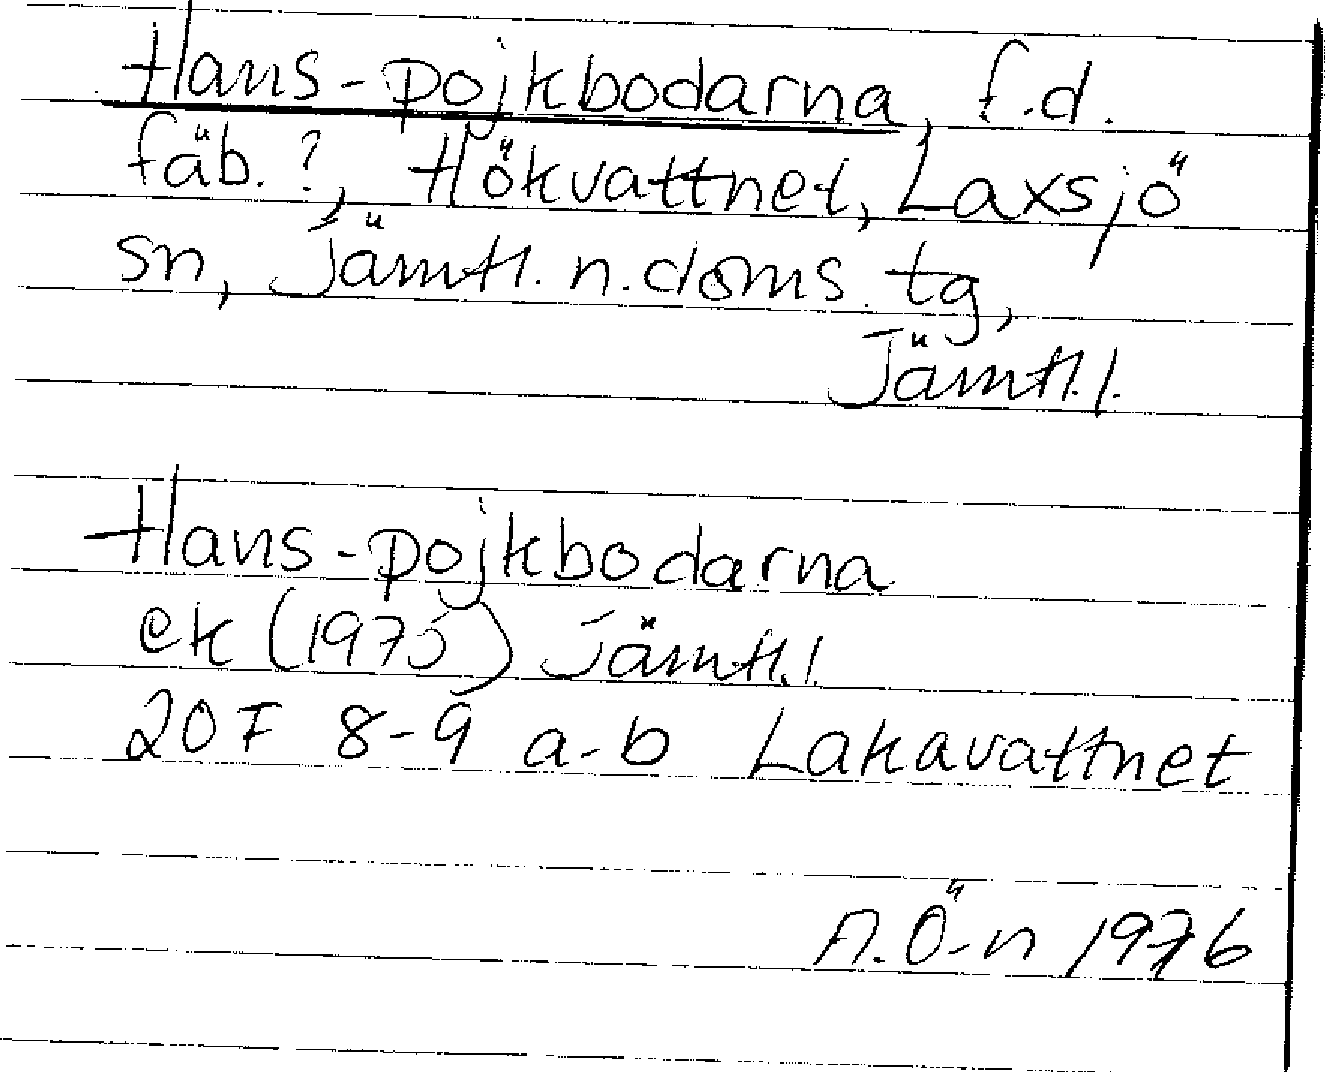 Hans-pojkbodarna, f.d.
fäb.?, Hökvattnet, Laxsjö
sn, Jämtl. n. doms. tg,
Jämtl. l.
Hans-pojkbodarna
ek (1975) Jämtl. l.
20F 8-9 a-b Lakavattnet
A. Ö-n 1976